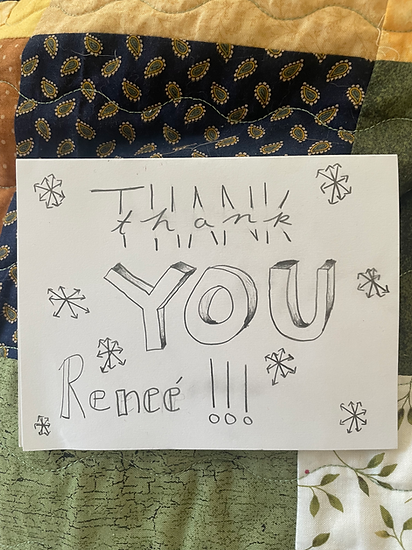 THANK
thank
YOU
Reneé !!!